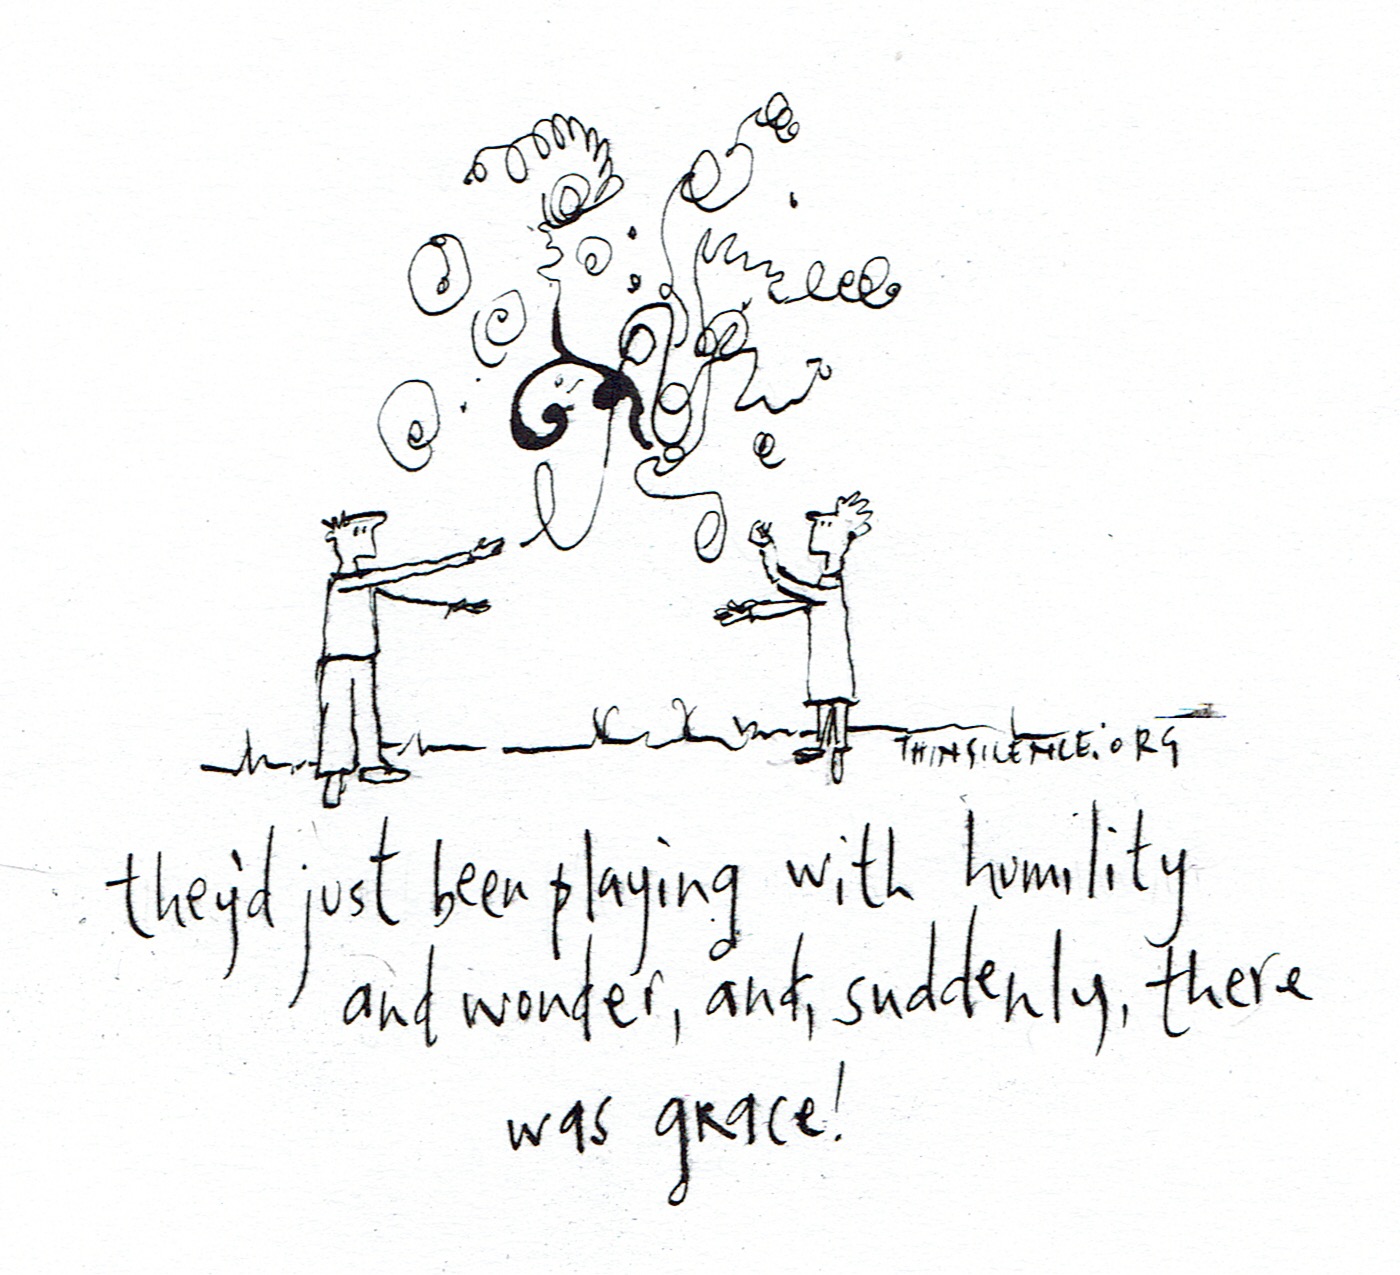 THINSILENCE.ORG
they'd just been playing with humility
and wonder, and, suddenly, there
was grace!